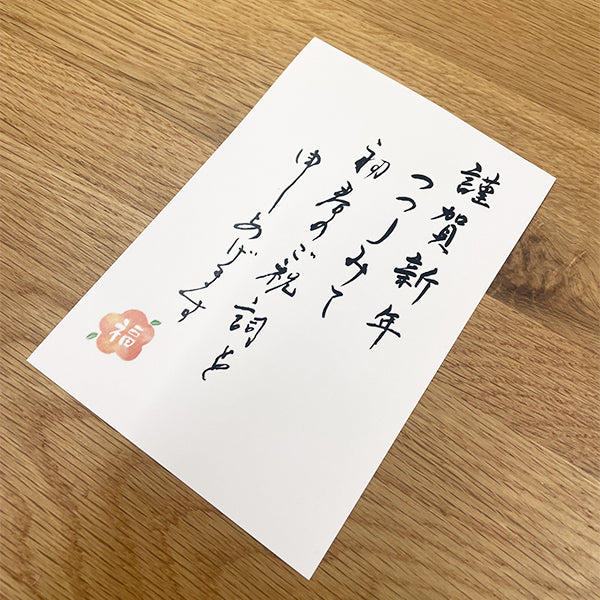 謹賀新年
つつしみて
初春のご祝詞を
申しあげます
福